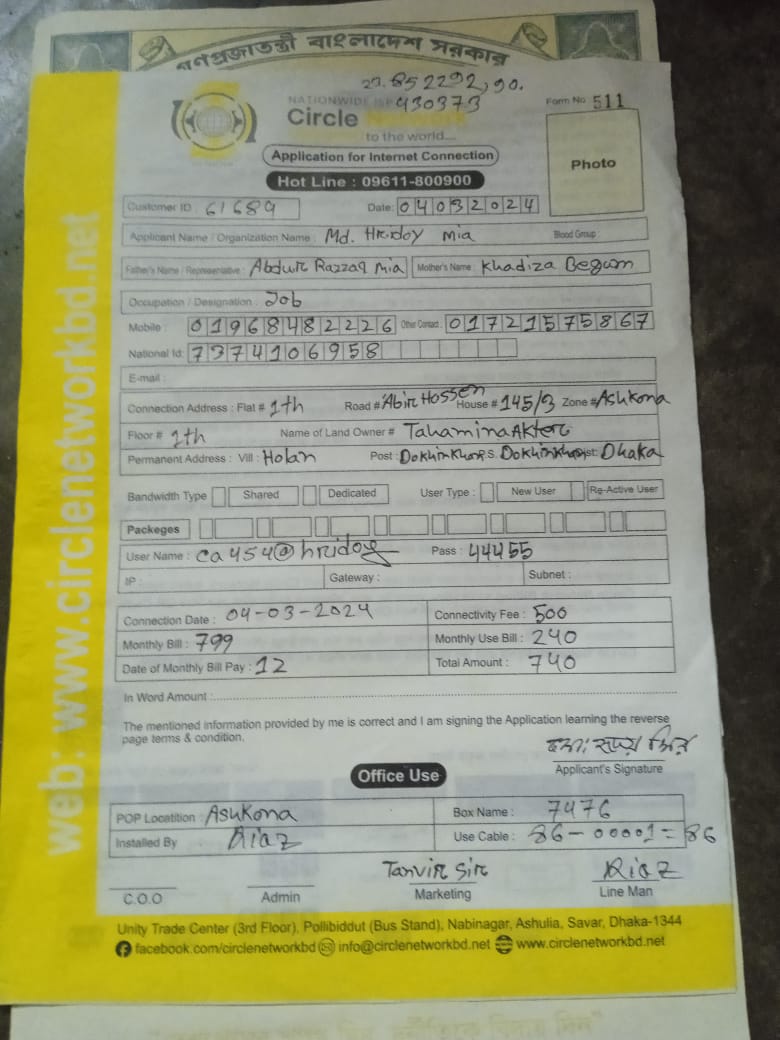 গণপ্রজাতন্ত্রী বাংলাদেশ সরকার
২৩.852292,90.
NATIONWIDE ISP 430373
Form No 511
Circle Network
to the world....
Application for Internet Connection
Photo
Hot Line : 09611-800900
Customer ID : 61689 Date: 04032024
Applicant Name / Organization Name : Md. Hridoy mia Blood Group :
Father's Name / Representative : Abdur Razzaq Mia Mother's Name : Khadiza Begum
Occupation / Designation : Job
Mobile : 01968482226 Other Contact : 01721575867
National Id: 7374106958
E-mail :
Connection Address : Flat # 1th Road # Abir Hossen House # 145/3 Zone # Ashkona
Floor # 1th Name of Land Owner # Tahamina Akter
Permanent Address : Vill : Holan Post : Dokhinkhan P.S. Dokhinkhan Dist: Dhaka
Bandwidth Type Shared Dedicated User Type : New User Re-Active User
Packeges
User Name : ca454@hridoy Pass : 44455
IP : Gateway : Subnet :
Connection Date : 04-03-2024 Connectivity Fee : 500
Monthly Bill : 799 Monthly Use Bill : 240
Date of Monthly Bill Pay : 12 Total Amount : 740
In Word Amount :
The mentioned information provided by me is correct and I am signing the Application learning the reverse
page terms & condition.
Applicant's Signature
Office Use
POP Locatition : Asukona Box Name : 7476
Installed By Riaz Use Cable : 86-00001=86
Tanvir Sir Riaz
C.O.O Admin Marketing Line Man
Unity Trade Center (3rd Floor), Pollibiddut (Bus Stand), Nabinagar, Ashulia, Savar, Dhaka-1344
facebook.com/circlenetworkbd info@circlenetworkbd.net www.circlenetworkbd.net
web: www.circlenetworkbd.net